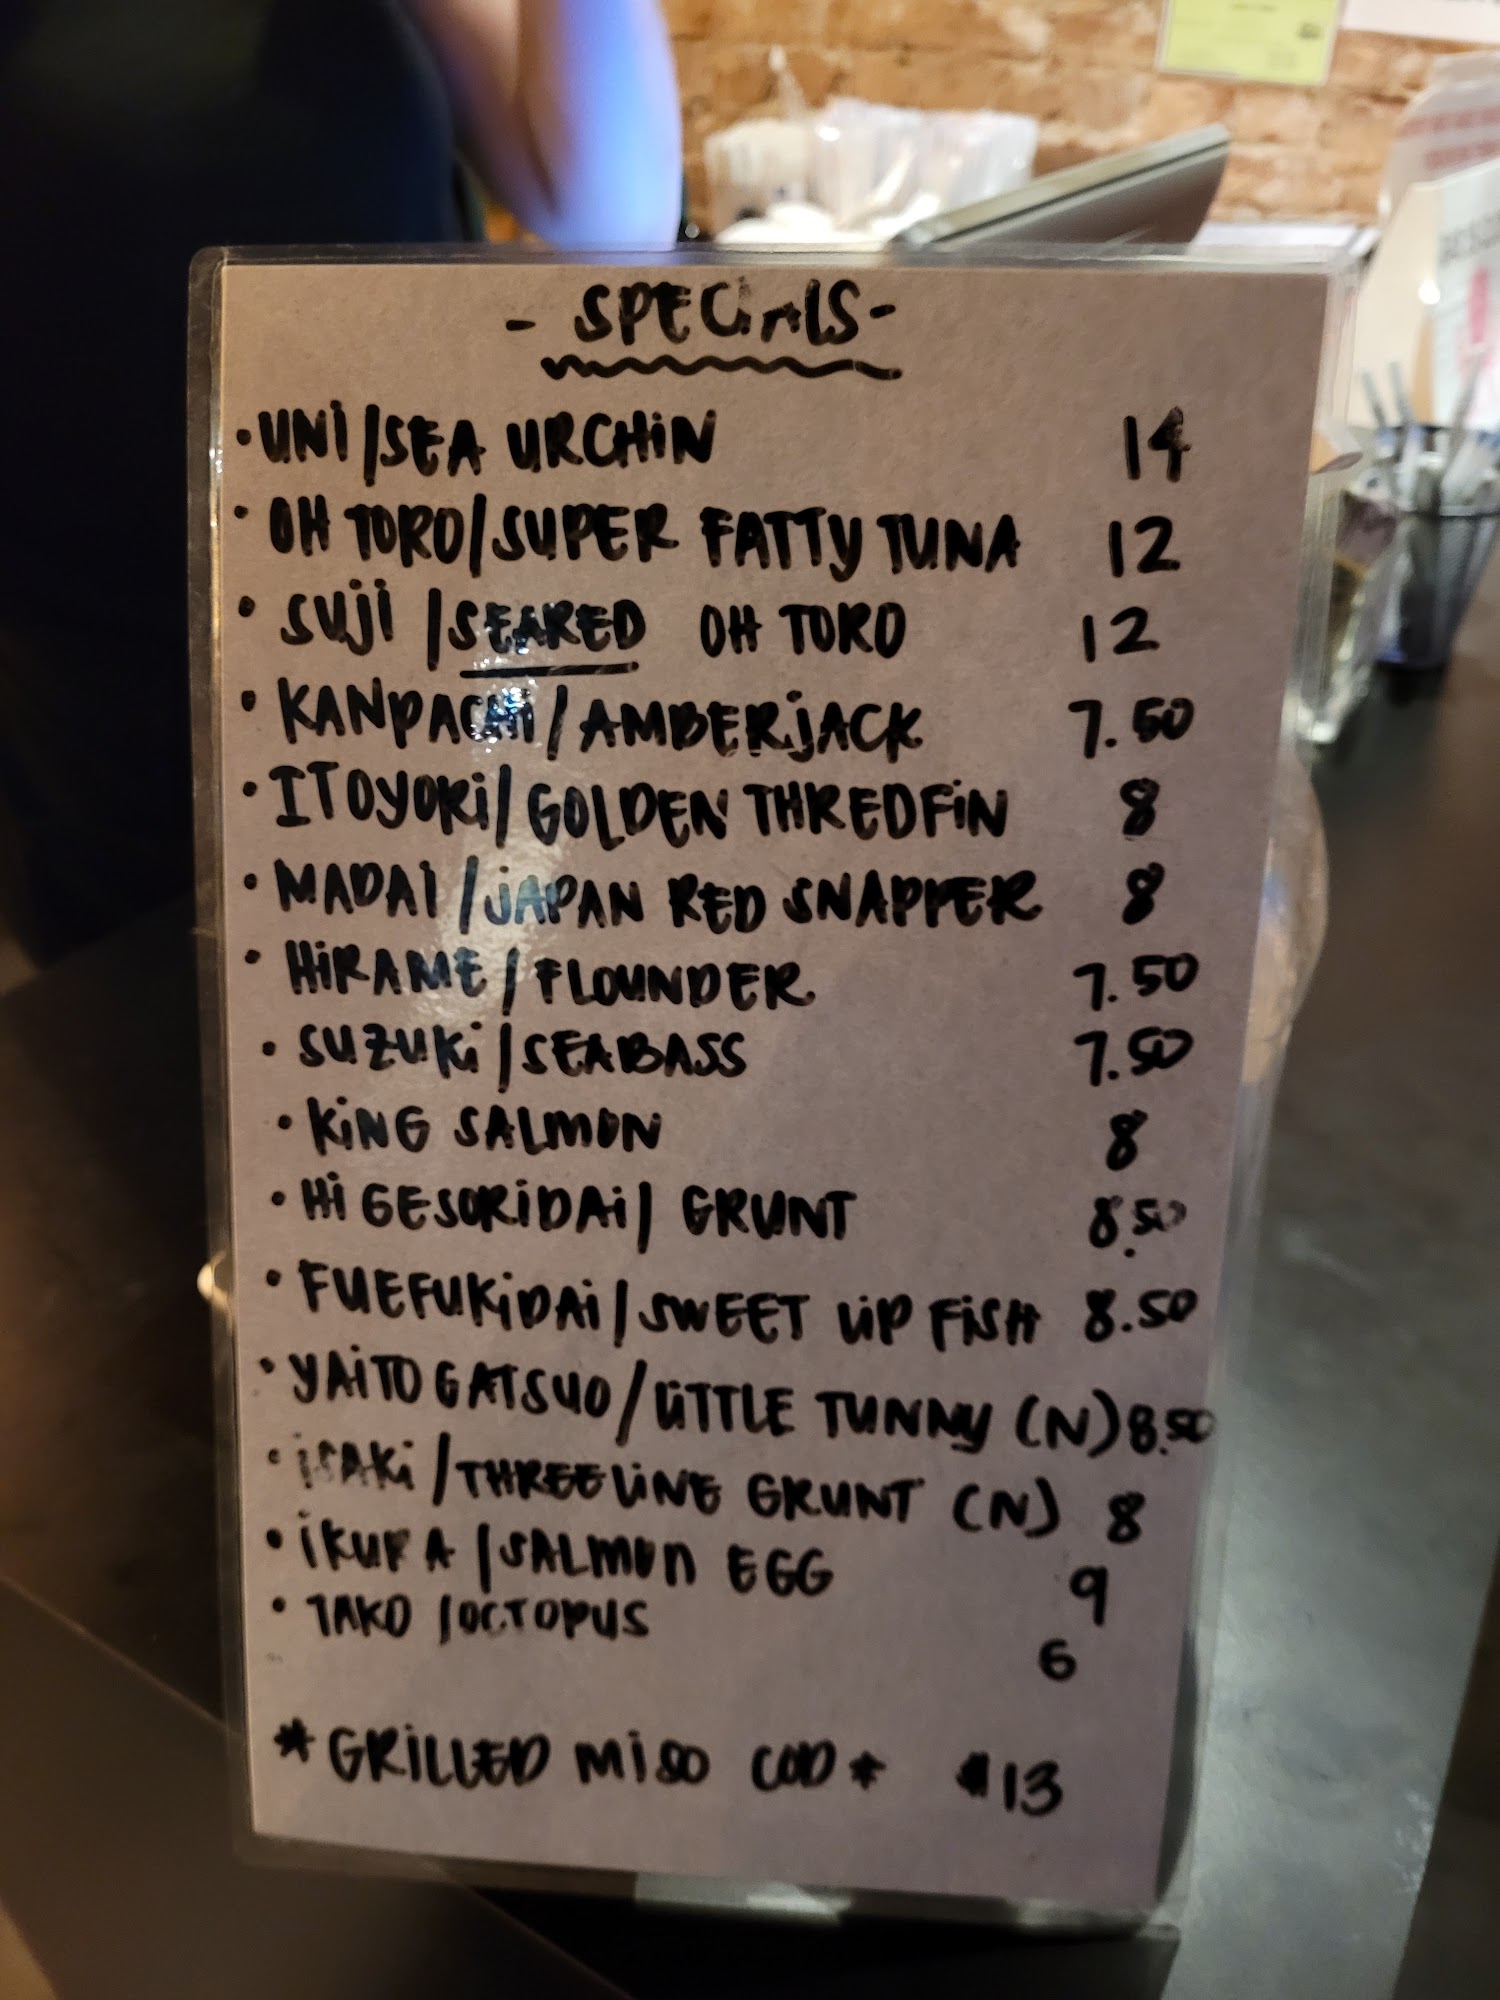 - SPECIALS -
• UNI/SEA URCHIN 14
• OH TORO/SUPER FATTY TUNA 12
• SUJI/SEARED OH TORO 12
• KANPACHI/AMBERJACK 7.50
• ITOYORI/GOLDEN THREDFIN 8
• MADAI/JAPAN RED SNAPPER 8
• HIRAME/FLOUNDER 7.50
• SUZUKI/SEABASS 7.50
• KING SALMON 8
• HI GESORIDAI/GRUNT 8.50
• FUEFUKIDAI/SWEET LIP FISH 8.50
• YAITO GATSUO/LITTLE TUNNY (N) 8.50
• ISAKI/THREELINE GRUNT (N) 8
• IKURA/SALMON EGG 9
• TAKO/OCTOPUS 6
*GRILLED MISO COD* $13